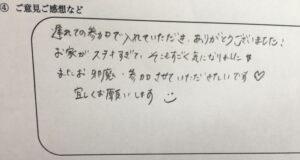 ④ ご意見ご感想など
遅れての参加で入れていただき、ありがとうございました!
お家がステキすぎて、そっちもすごく気になりました
またお邪魔・参加させていただきたいです♡
宜しくお願いします